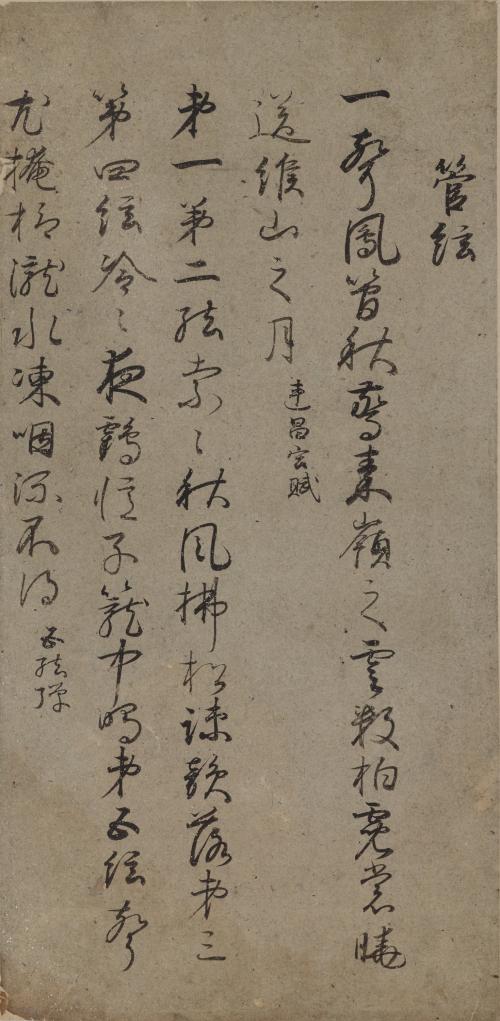 管絃
一聲鳳管秋驚秦嶺之雲數拍霓裳曉
送緱山之月 連昌宮賦
第一第二絃索〻秋風拂松疎韻落第三
第四絃冷〻夜鶴憶子籠中鳴第五絃聲
尤掩抑瀧水凍咽流不得 五絃彈